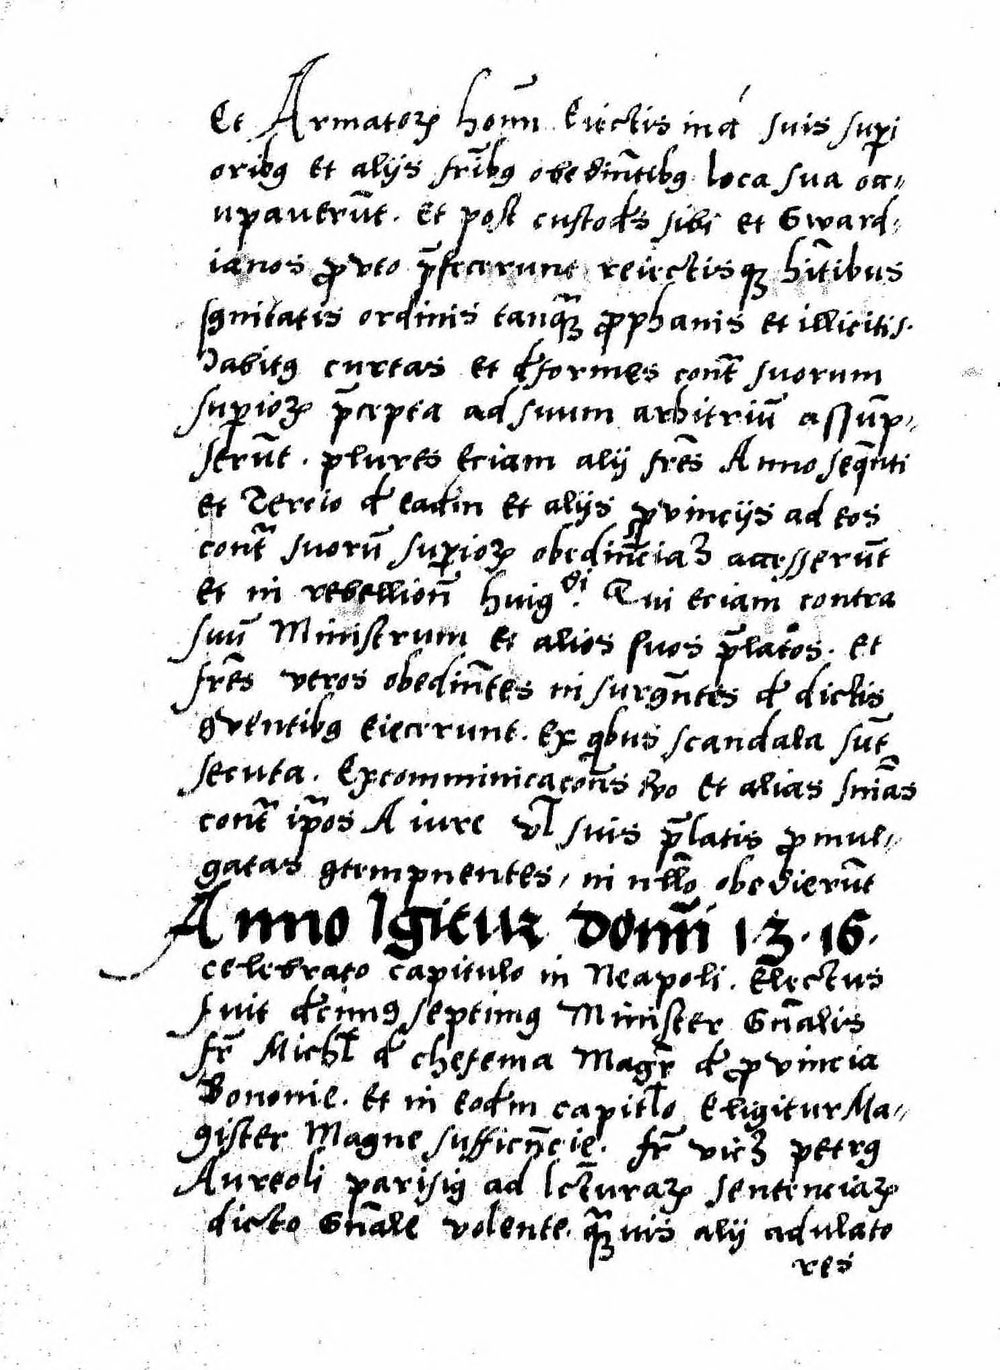 Et Armatoꝝ hom̄ Eiectis in a suis sup̱i
orib9 Et alijs fr̄ib9 obediēntib9 loca sua occ„
upauerūt. Et post custodes sibi et Gward„
ianos ꝓuto p̄fecerunt reiectisqꝫ hītibus
ignitatis ordinis tanqꝫ ꝓphanis et illicitis.
habit9 curtas et deformes cont̄ suorum
sup̱ioꝝ p̄cepta ad suum arbitriū assūp„
serūt. plures eciam alij fr̄es Anno seq̄nti
et Tercio de eadm̄ Et alijs ꝓuincijs ad eos
cont̄ suorū sup̱ioꝝ obediēnciaꝫ accesserūt
Et in rebellion̄ huig9di. Qui eciam contra
suū Ministrum et alios suos p̄latos. Et
fr̄es veros obediēntes insurgēntes de dictis
ꝯuentib9 eiecerunt. Ex q̇bus scandala sūt
secuta. Excomminicacōn̄s v̊o Et alias sn̄ias
cont̄ ip̄os A iure vl̄ suis p̄latis ꝓmul„
gatas ꝯtempnentes, in nl̄lo obedierūt
Anno Igitur domī 1.3.16.
celebrato capitulo in Neapoli. Electus
fuit decim9 septim9 Minister Gn̄alis
fr̄ Mich̄l de chesema Magr̄ de ꝓuincia
Bononie. Et in eodm̄ capitlo Eligitur Ma„
gister Magne sufficn̄cie. fr̄ vicꝫ petr9
Aureoli parisi9 ad lc̄turaꝝ sentenciaꝝ
dicto Gn̄ale volente. qꝫuis alij adulato
res